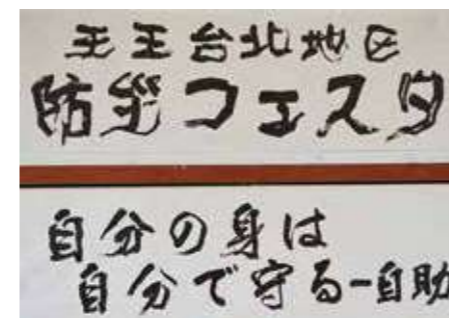 天王台北地区
防災フェスタ
自分の身は
自分で守る-自助